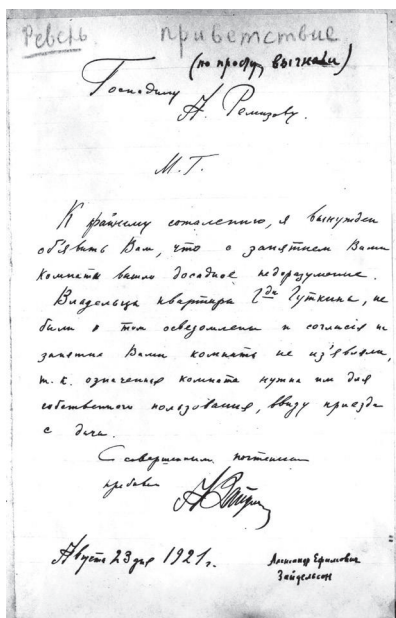 Ревель приветствие
(по просту выгнали)
Господину
А. Ремизову.
М. Г.
К крайнему сожалению, я вынужден
об'явить Вам, что с занятием Вами
комнаты вышло досадное недоразумение.
Владельцы квартиры Г-да Гуткины, не
были о том осведомлены и согласия на
занятие Вами комнаты не из'являли,
т. к. означенная комната нужна им для
собственного пользования, ввиду приезда
с дачи.
С совершенным почтением
пребываю
Августа 23 дня 1921 г.
Александр Ефимович
Зайдельсон